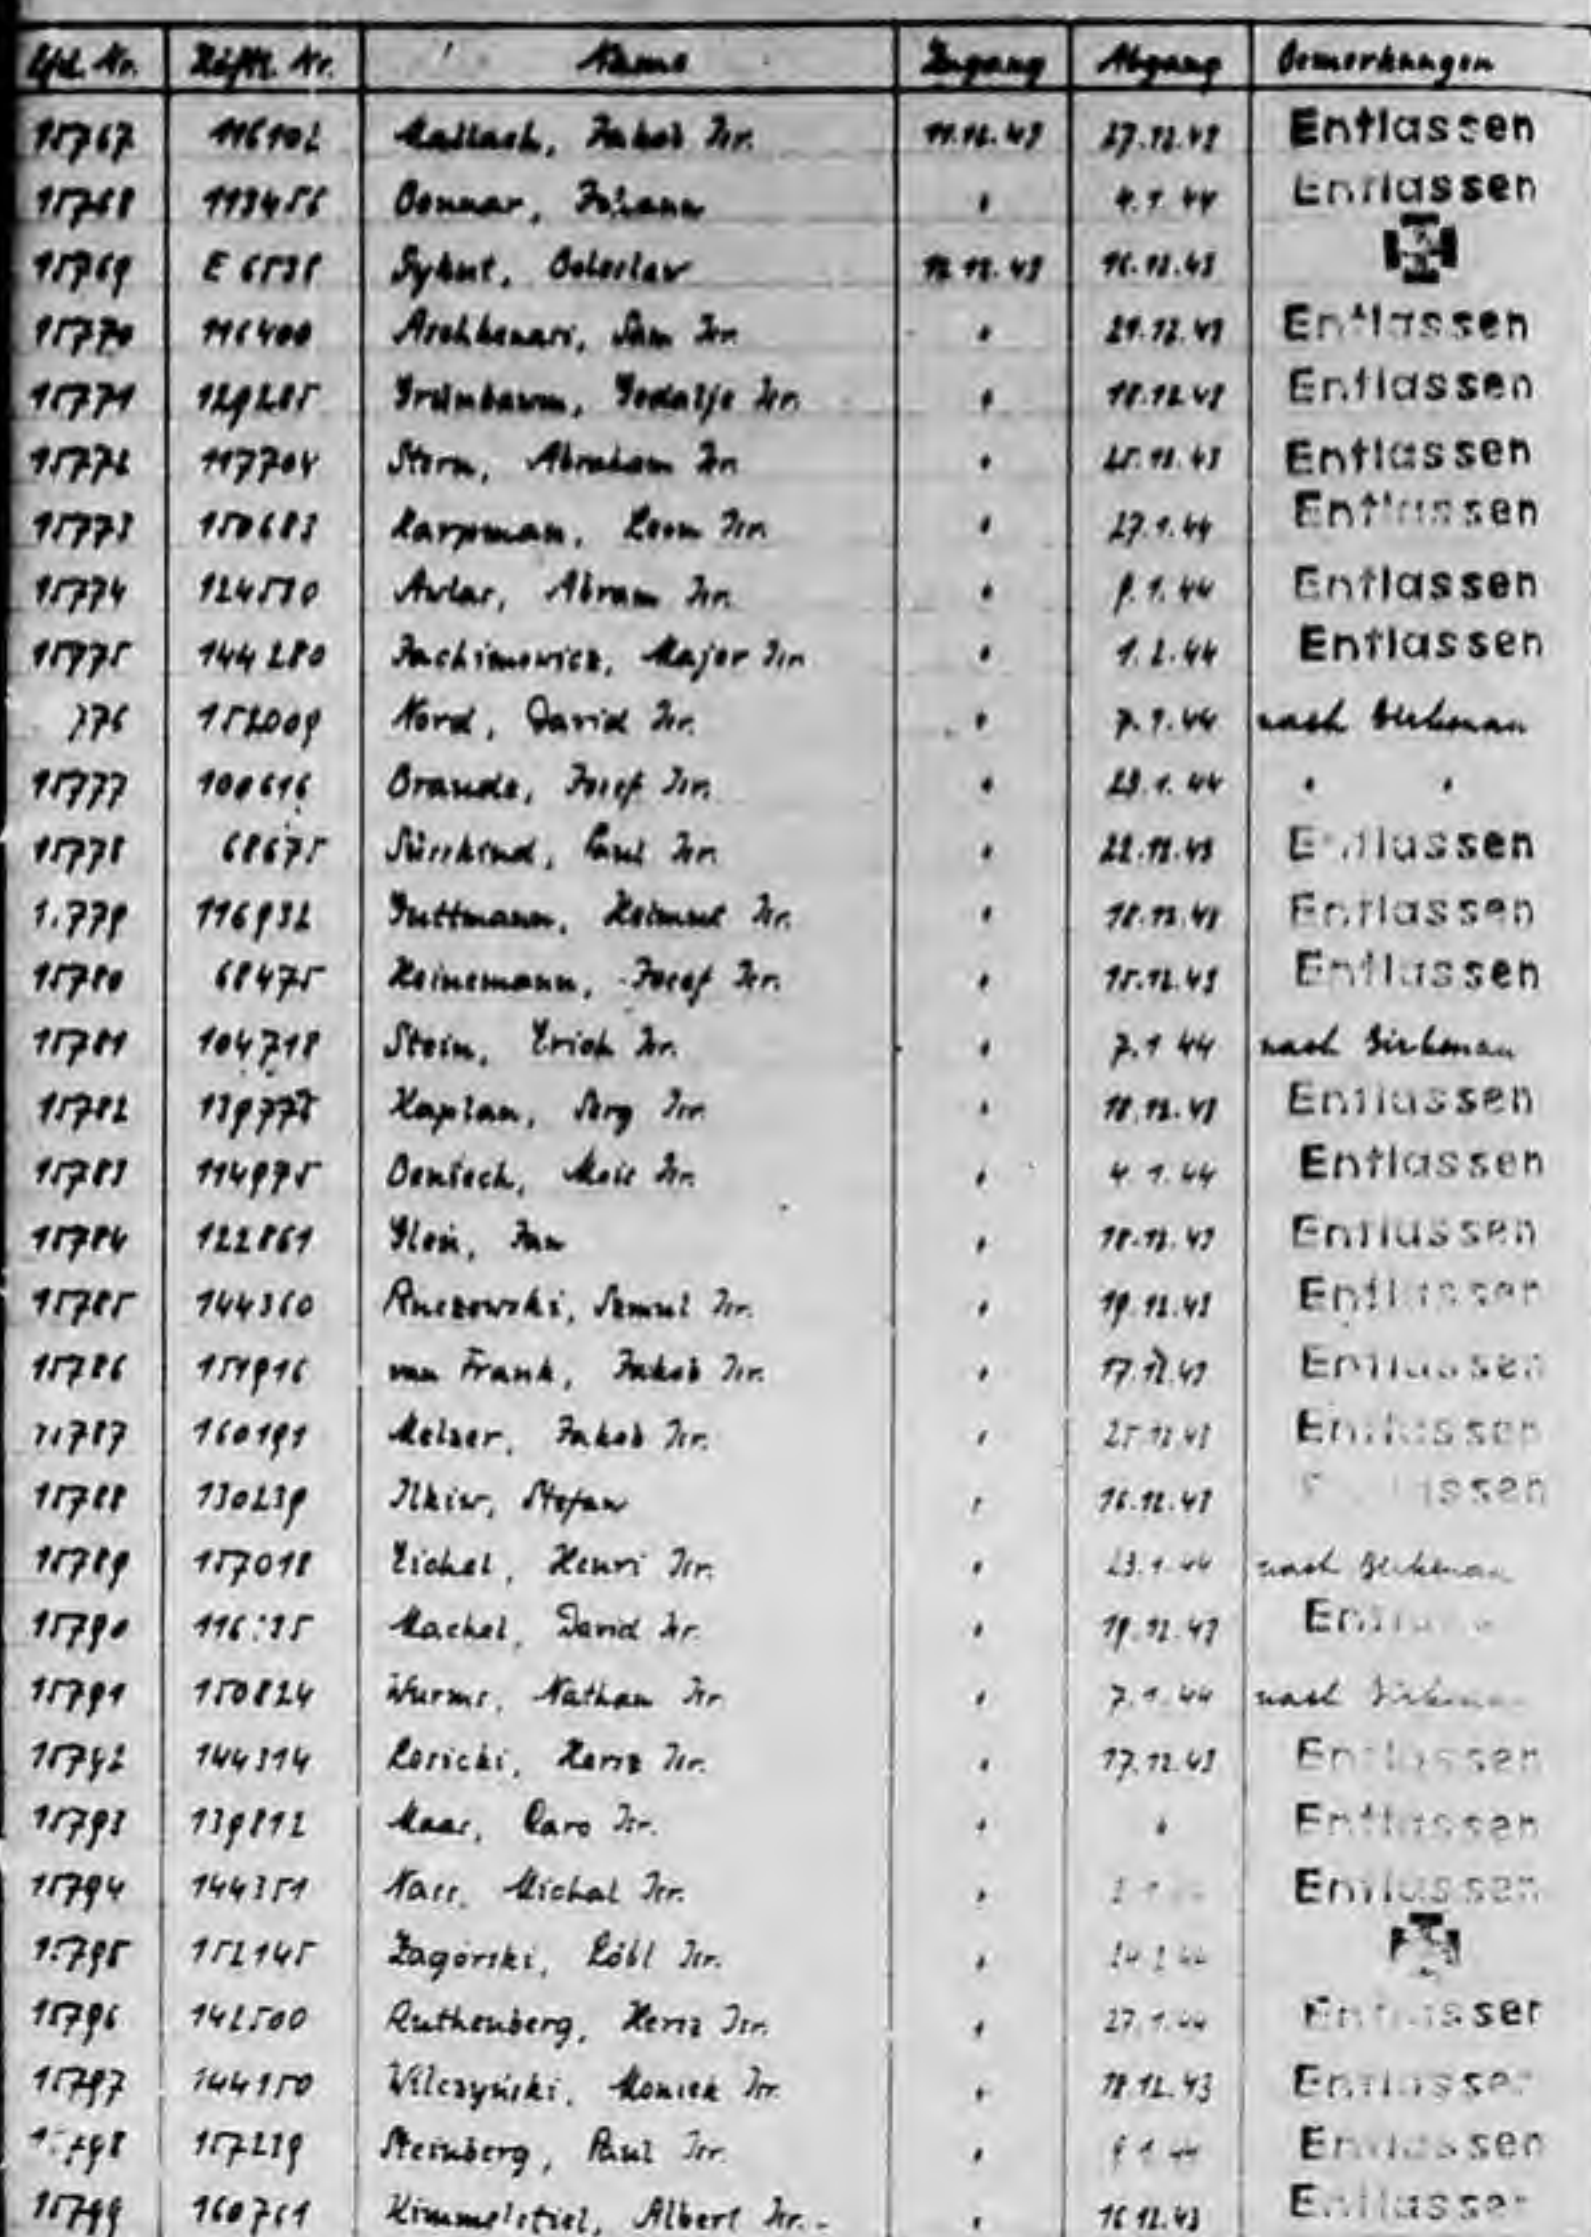 Lfd. Nr. Häftl. Nr. Name Zugang Abgang Bemerkungen
15767 116102 Jakob Isr. 11.12.43 27.12.43 Entlassen
15768 113456 Johann " 4.1.44 Entlassen
15769 E 6535 Sykut, Boleslav 12.12.43 16.12.43
15770 116400 Arohkenari, Sam Isr. " 21.12.43 Entlassen
15771 129285 Grünbawm, Godalje Isr. " 18.12.43 Entlassen
15772 117704 Stern, Abraham Isr. " 25.12.43 Entlassen
15773 150683 Karpman, Leon Isr. " 27.1.44 Entlassen
15774 124530 Abram Isr. " 1.44 Entlassen
15775 144280 Jachimowicz, Majer Isr. " 1.2.44 Entlassen
776 152009 Nord, David Isr. " 7.1.44 nach Birkenau
15777 100616 Braude, Josef Isr. " 23.1.44 " "
15778 68675 Süsskind, Paul Isr. " 22.12.43 Entlassen
15779 116932 Guttmann, Helmut Isr. " 18.12.43 Entlassen
15780 68475 Heinemann, Josef Isr. " 15.12.43 Entlassen
15781 104718 Stein, Erich Isr. " 7.1.44 nach Birkenau
15782 139778 Kaplan, Serg Isr. " 18.12.43 Entlassen
15783 114975 Isr. " 4.1.44 Entlassen
15784 122861 Jan " 18.12.43 Entlassen
15785 144360 Ruczowski, Szmul Isr. " 19.12.43 Entlassen
15786 151916 van Frank, Jakob Isr. " 17.12.43 Entlassen
15787 160191 Melzer, Jakob Isr. " 25.12.43 Entlassen
15788 130239 Ilkiw, Stefan " 16.12.43 Entlassen
15789 157018 Eichel, Henri Isr. " 23.1.44 nach Birkenau
15790 Machel, David Isr. " 19.12.43 Entlassen
15791 150824 Wurms, Nathan Isr. " 7.1.44 nach Birkenau
15792 144314 Losicki, Hersz Isr. " 17.12.43 Entlassen
15793 139812 Maas, Caro Isr. " " Entlassen
15794 144351 Nass, Michal Isr. " Entlassen
15795 152145 Zagórski, Löbl Isr. "
15796 142500 Ruthenberg, Hersz Isr. " 27.1.44 Entlassen
15797 144150 Wilczyński, Moniek Isr. " 18.12.43 Entlassen
15798 157239 Steinberg, Paul Isr. " Entlassen
15799 160761 Kimmelstiel, Albert Isr. " 16.12.43 Entlassen